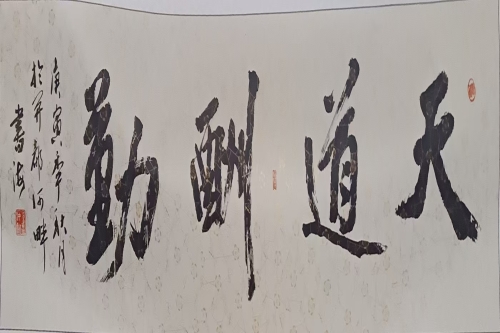 天道酬勤
庚寅年秋月
於开都河畔
书海